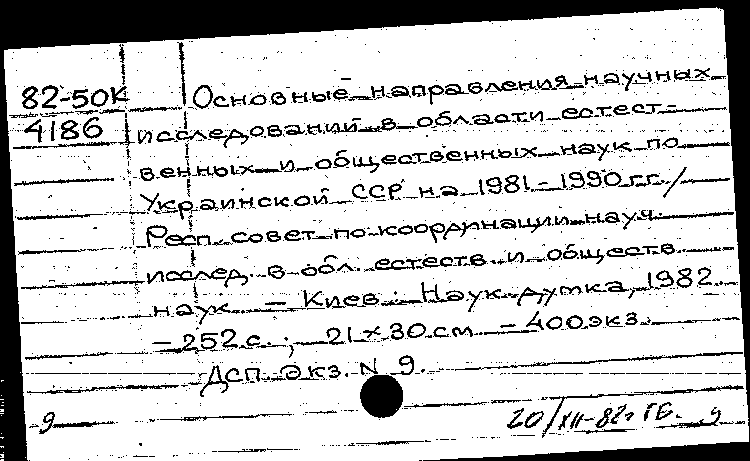 82-50К Основные направления научных
4186 исследований в области естест-
венных и общественных наук по
Украинской ССР на 1981-1990 гг. /
Респ. совет по координации науч.
исслед. в обл. естеств. и обществ.
наук. - Киев: Наук. думка, 1982.
- 252 с.; 21×30 см. - 400 экз.
ДСП. Экз. N 9.
9 20/XII-82г ГБ. 9